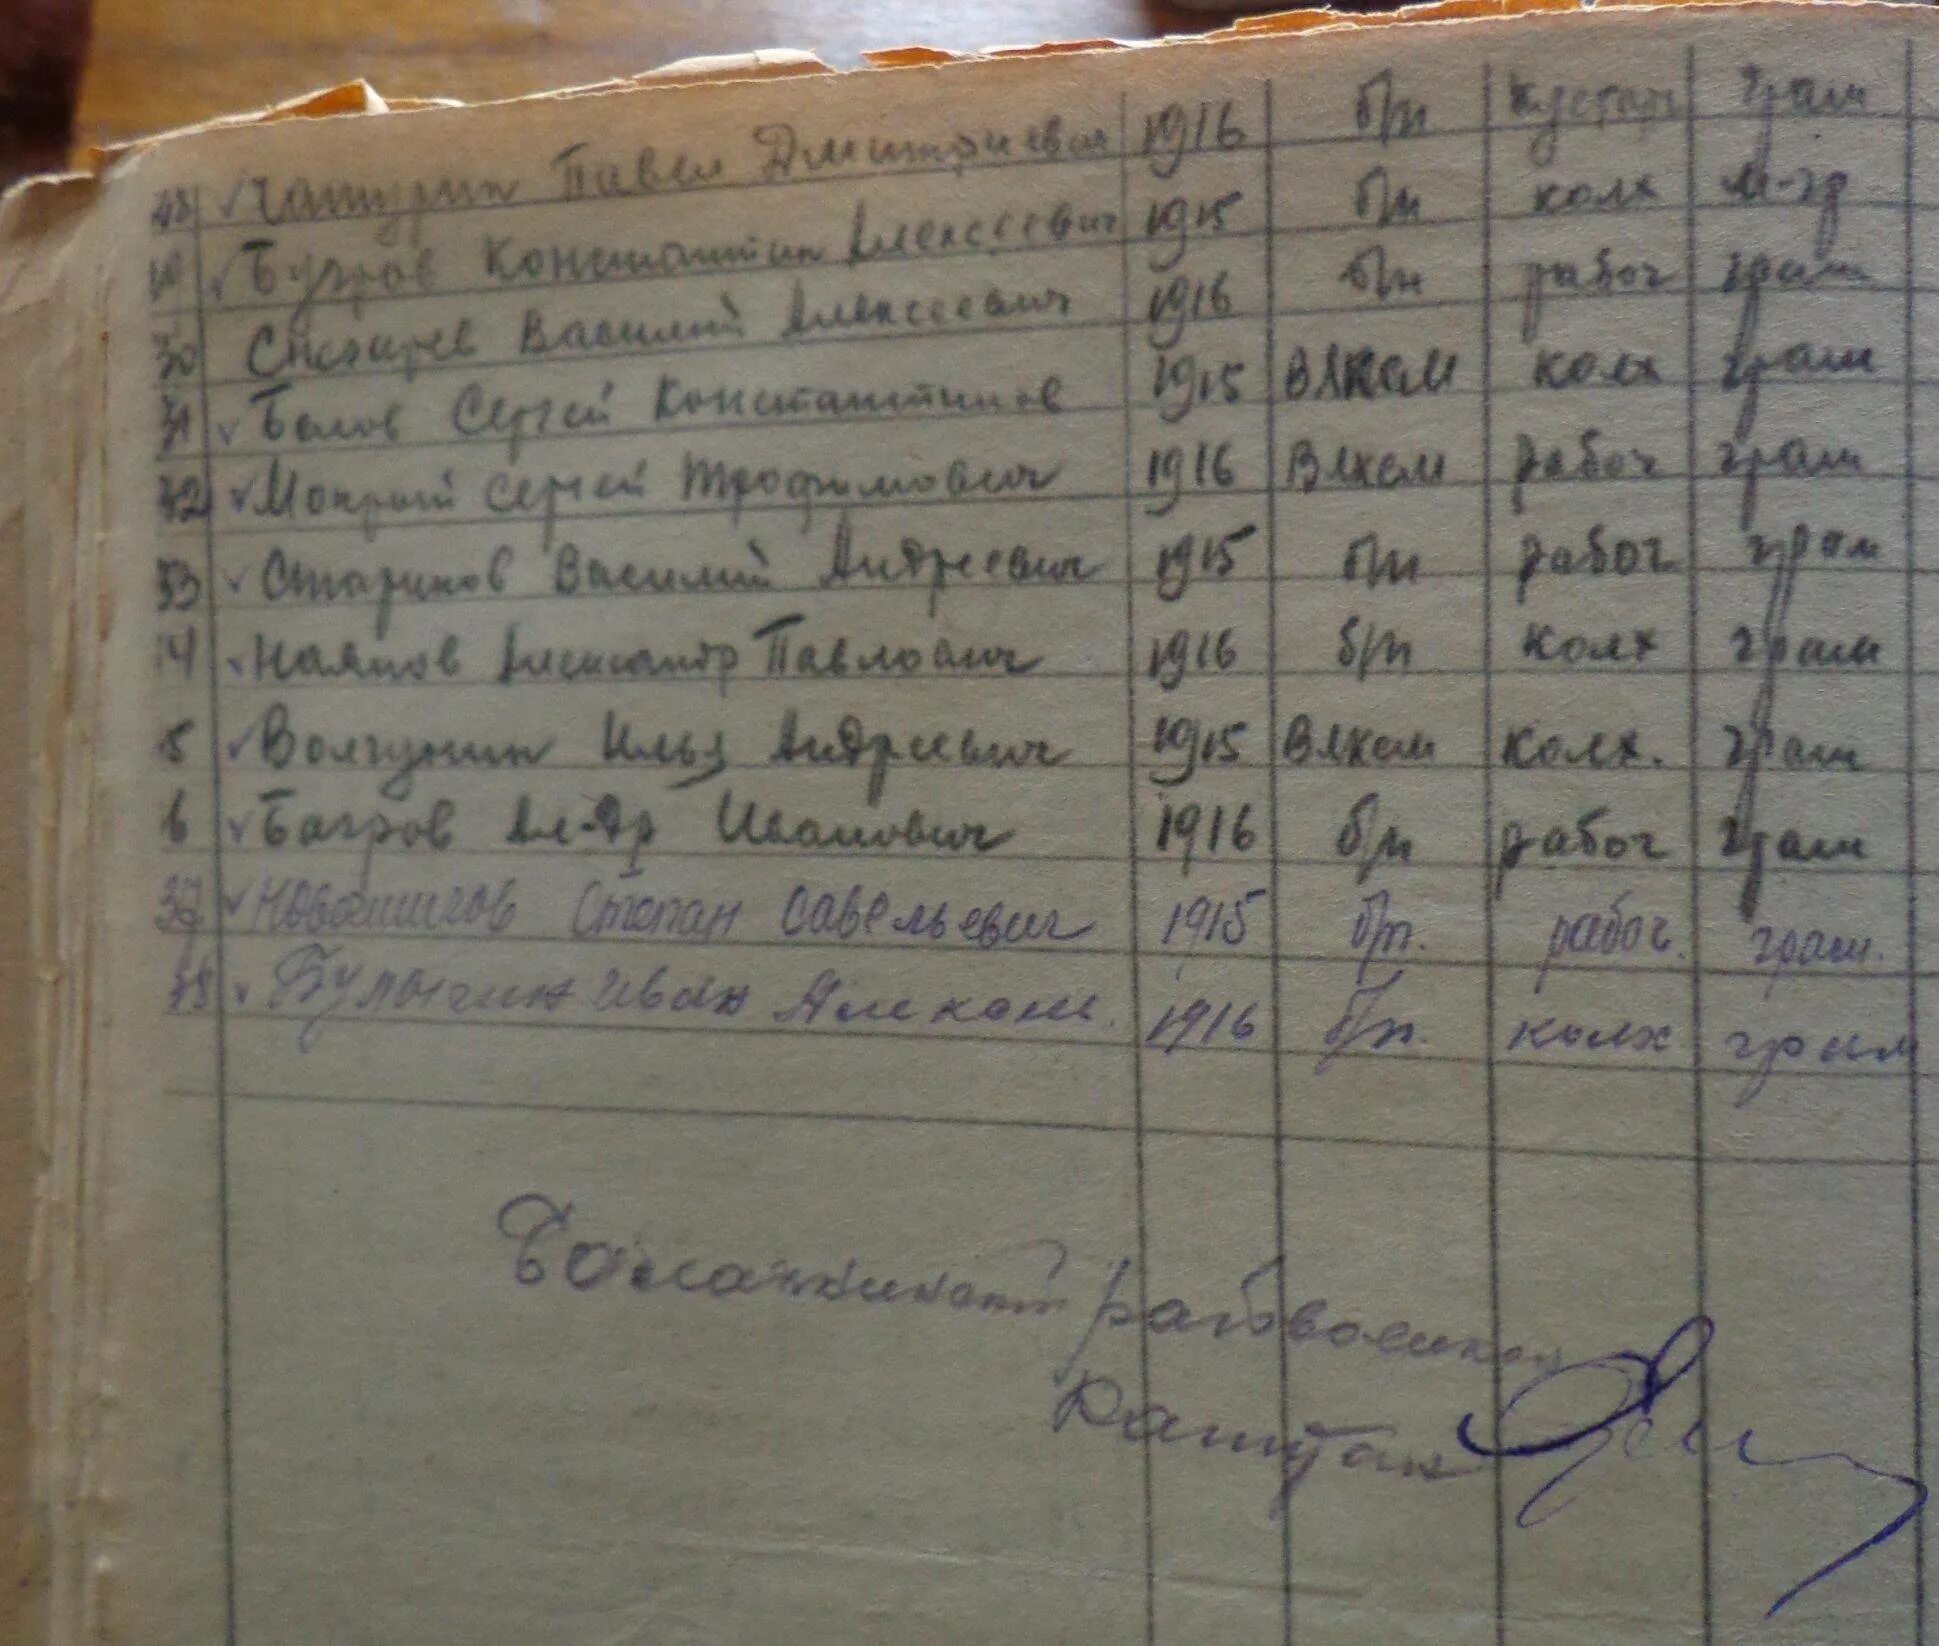 48 Чапурин Павел Дмитриевич 1916 б/п кустарь грам
Бугров Константин Алексеевич 1915 б/п колх м-гр
50 Снегирев Василий Алексеевич 1916 б/п рабоч грам
51 Белов Сергей Константинов 1915 ВЛКСМ колх грам
52 Мокрый Сергей Трофимович 1916 ВЛКСМ рабоч грам
53 Стариков Василий Андреевич 1915 б/п рабоч грам
4 Наянов Александр Павлович 1916 б/п колх грам
5 Волгунин Илья Андреевич 1915 ВЛКСМ колх. грам
6 Багров Ал-др Иванович 1916 б/п рабоч грам
57 Новошилов Степан Савельевич 1915 б/п. рабоч. грам.
58 Булыгин Иван Алексан. 1916 б/п. колх грам
Капитан